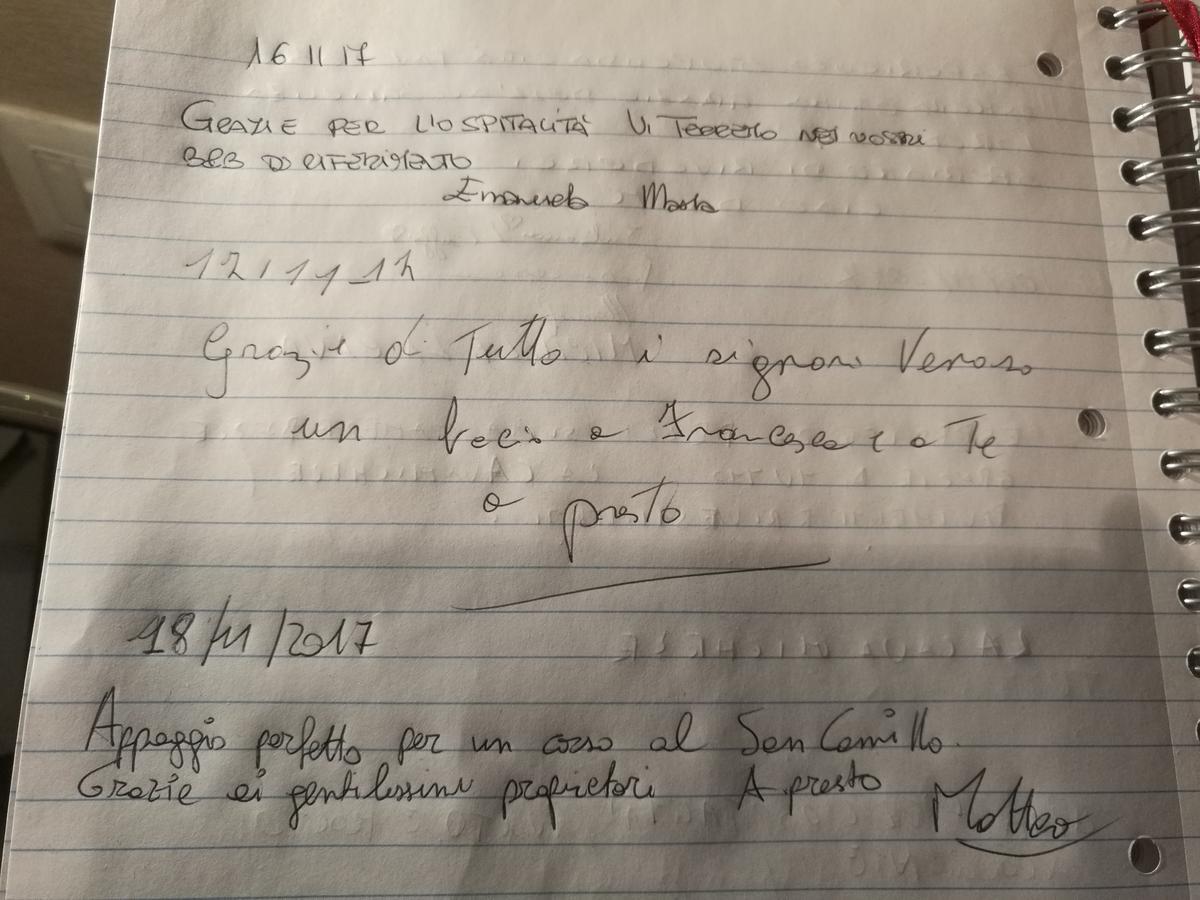 16 11 17
GRAZIE PER L'OSPITALITÀ VI TERREMO NEI VOSTRI
B&B DI RIFERIMENTO
Emanuela Marta
17/11_17
Grazie di Tutto i signori Veroso
un bacio a Francesca e a Te
a presto
18/11/2017
Appoggio perfetto per un corso al San Camillo.
Grazie ai gentilissimi proprietari A presto Matteo